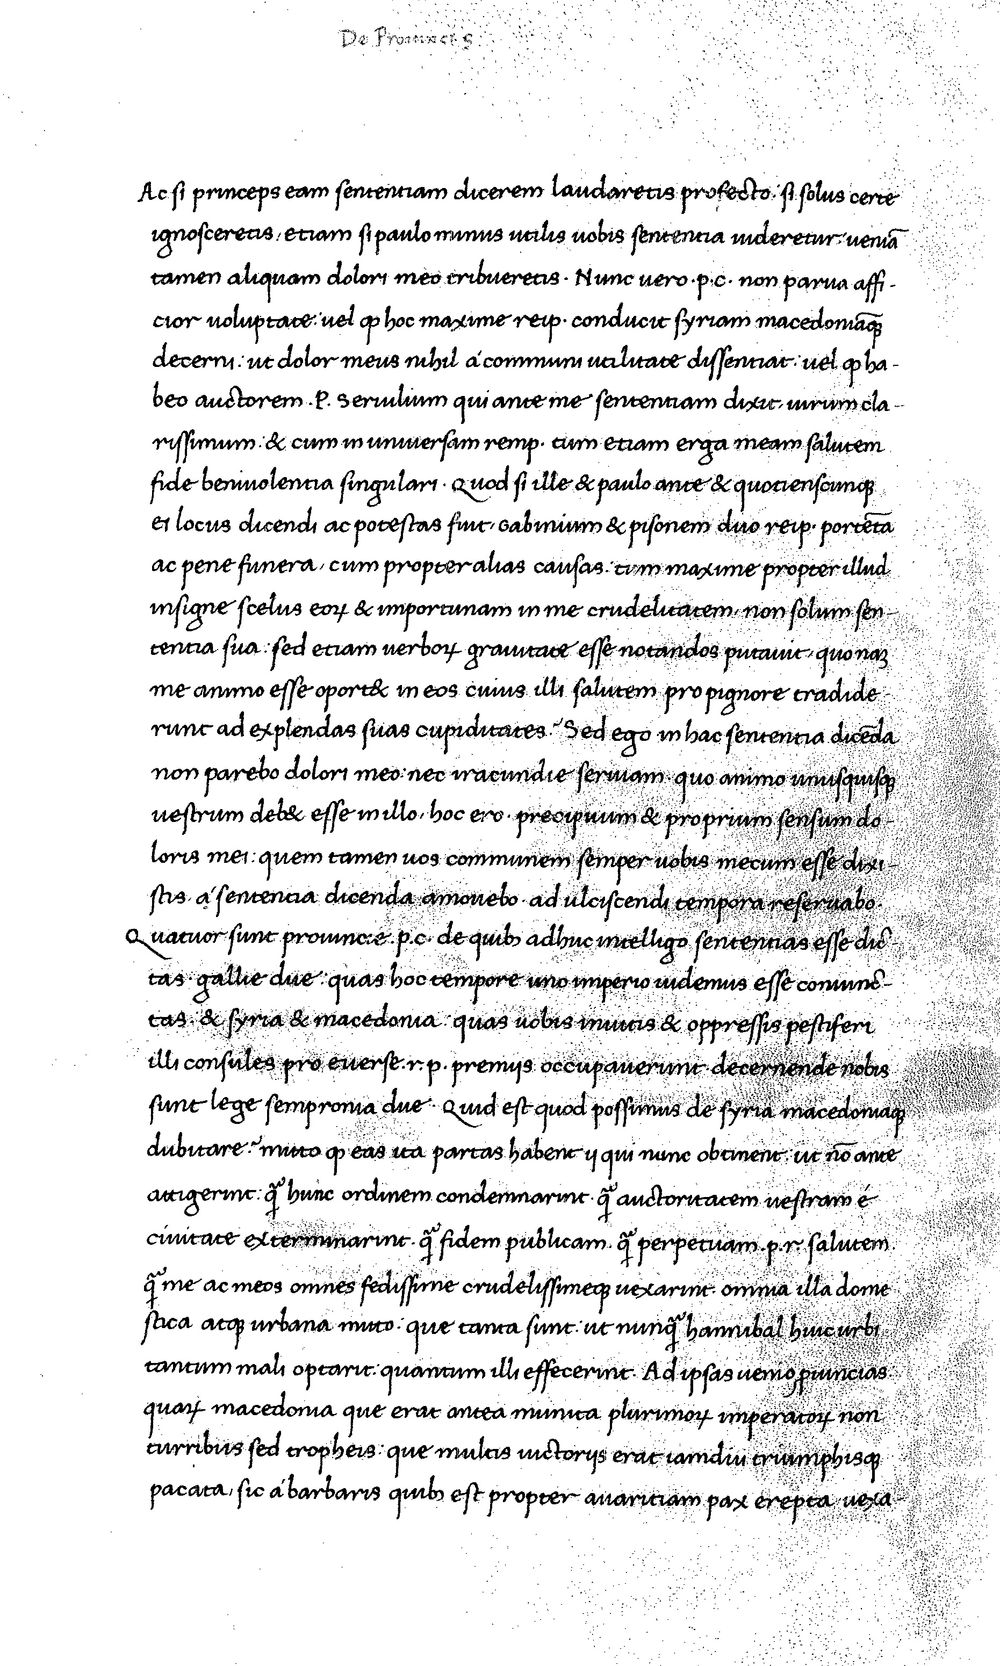 De Prouinciis
Ac si princeps eam sententiam dicerem laudaretis profecto: si solus certe
ignosceretis, etiam si paulo minus utilis uobis sententia uideretur: ueniā
tamen aliquam dolori meo tribueretis. Nunc vero .p.c. non parua affi-
cior voluptate: vel ꝙ hoc maxime reip. conducit syriam macedoniāqꝫ
decerni: ut dolor meus nihil á communi utilitate dissentiat: vel ꝙ ha-
beo auctorem .P. seruilium qui ante me sententiam dixit, uirum cla-
rissimum: & cum in universam remp. tum etiam erga meam salutem
fide beniuolentia singulari. Quod si ille & paulo ante & quotienscunqꝫ
ei locus dicendi ac potestas fuit, Gabinium & pisonem duo reip. portēta
ac pene funera, cum propter alias causas. tum maxime propter illud
insigne scelus eoꝝ & importunam in me crudelitatem, non solum sen-
tentia sua: sed etiam uerboꝝ grauitate esse notandos putauit, quonaꝫ
me animo esse oport& in eos cuius illi salutem pro pignore tradide-
runt ad explendas suas cupiditates? Sed ego in hac sententia dicēda
non parebo dolori meo: nec iracundie seruiam. quo animo unusquisqꝫ
vestrum deb& esse in illo, hoc ero. precipuum & proprium sensum do-
loris mei: quem tamen uos communem semper uobis mecum esse dixi-
stis. á sententia dicenda amouebo. ad ulciscendi tempora reseruabo.
Quatuor sunt prouincie .p.c. de quibꝫ adhuc intelligo sententias esse dic-
tas. gallie due: quas hoc tempore uno imperio uidemus esse coniunc-
tas. & syria & macedonia: quas uobis inuitis & oppressis pestiferi
illi consules pro euerse .r.p. premijs occupauerunt. decernende nobis
sunt lege sempronia due. Quid est quod possimus de syria macedoniaqꝫ
dubitare? mitto ꝙ eas ita partas habent ij qui nunc obtinent: ut nō ante
attigerint: q̄ȝ hunc ordinem condemnarint. q̄ȝ auctoritatem uestram é
ciuitate exterminarint. q̄ȝ fidem publicam. q̄ȝ perpetuam .p.r. salutem.
q̄ȝ me ac meos omnes fedissime crudelissimeqꝫ uexarint. omnia illa dome
stica atqꝫ urbana mitto: que tanta sunt: ut nunq̄ȝ hannibal huic urbi
tantum mali optarit: quantum illi effecerint. Ad ipsas uenio ꝓuincias
quaꝝ macedonia que erat antea munita plurimoꝝ imperatoꝝ non
turribus sed tropheis: que multis uictorijs erat iamdiu triumphisqꝫ
pacata, sic á barbaris quibꝫ est propter auaritiam pax erepta uexa-